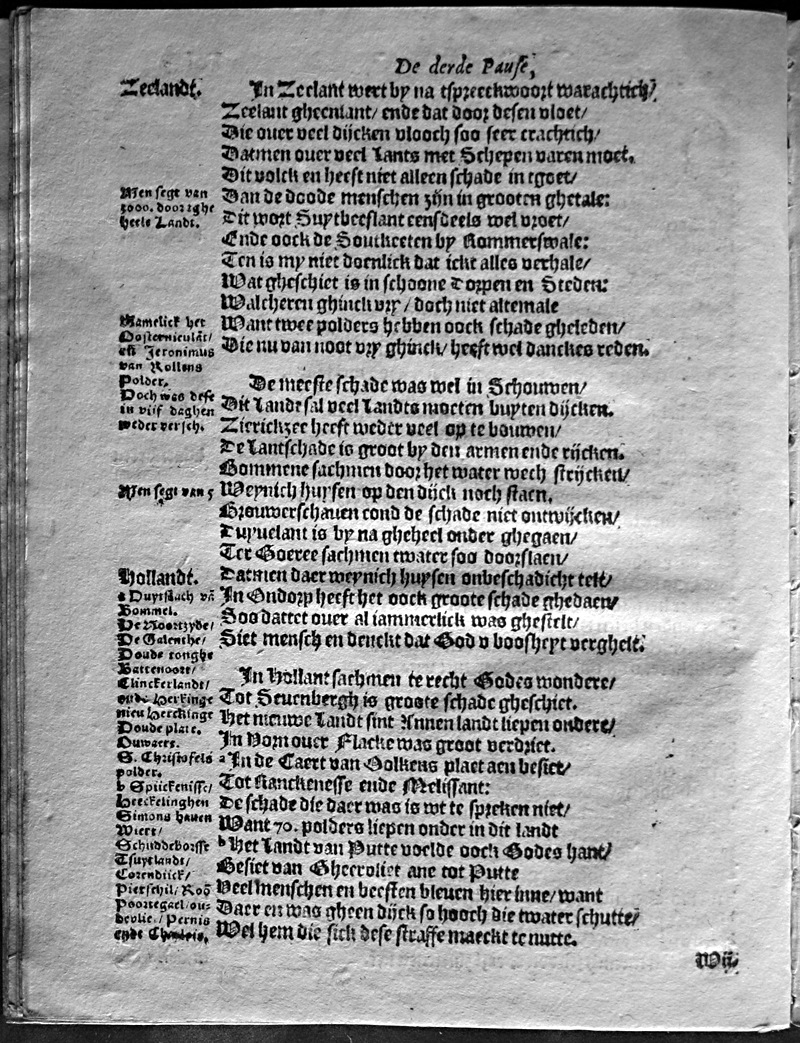 De derde Pause,
Zeelandt.
In Zeelant wert by na tspreeckwoort warachtich/
Zeelant gheenlant/ ende dat door desen vloet/
Die ouer veel dijcken vlooch soo seer crachtich/
Datmen ouer veel Lants met Schepen varen moet.
Dit volck en heeft niet alleen schade in tgoet/
Men segt van
3000. door tghe
heele Landt.
Dan de doode menschen zijn in grooten ghetale:
Dit wort Suytbeeslant eensdeels wel vroet/
Ende oock de Soutkeeten by Rommerswale:
Ten is my niet doenlick dat ickt alles verhale/
Wat gheschiet is in schoone Dorpen en Steden:
Walcheren ghinck vry/ doch niet altemale
Namelick het
Oosternieulāt/
eñ Jeronimus
van Rollens
Polder.
Doch was dese
in vijf daghen
weder versch.
Want twee polders hebben oock schade gheleden/
Die nu van noot vry ghinck/ heeft wel danckes reden.
De meeste schade was wel in Schouwen/
Dit Landt sal veel Landts moeten buyten dijcken.
Zierickzee heeft weder veel op te bouwen/
De Lantschade is groot by den armen ende rijcken.
Bommene sachmen door het water wech strijcken/
Men segt van 5
Weynich huysen op den dijck noch staen.
Brouwerschauen cond de schade niet ontwijcken/
Duyuelant is by na gheheel onder ghegaen/
Ter Goeree sachmen twater soo doorslaen/
Datmen daer weynich huysen onbeschadicht telt/
In Ondorp heeft het oock groote schade ghedaen/
Soo dattet ouer al iammerlick was ghestelt/
Siet mensch en denckt dat God v boosheyt verghelt.
Hollandt.
a Duytslach vā
Bommel.
De Noortzyde/
De Galenthe/
Doude tonghe
Battenoort/
Clinckerlandt/
ende Herkinge
nieu Herckinge
Doude plate.
Duwaers.
S. Christofels
polder.
b Spijckenisse/
Heeckelinghen
Simons hauen
Biert/
Schuddeborsse
Tsuytlandt/
Corendijck/
Pietschil/ Roō
Poortegael/ ou-
deolie/ Pernis
ende Charlois.
In Hollant sachmen te recht Godes wondere/
Tot Seuenbergh is groote schade gheschiet.
Het nieuwe Landt sint Annen landt liepen ondere/
In Vorn ouer Flacke was groot verdriet.
a In de Caert van Golkens plaet aen besiet/
Tot Ranckenesse ende Melissant:
De schade die daer was is wt te spreken niet/
Want 70. polders liepen onder in dit landt
b Het Landt van Putte voelde oock Godes hant/
Besiet van Gheervliet ane tot Putte
Veel menschen en beesten bleuen hier inne/ want
Daer en was gheen dijck so hooch die twater schutte/
Wel hem die sick dese straffe maeckt te nutte.
Wij.